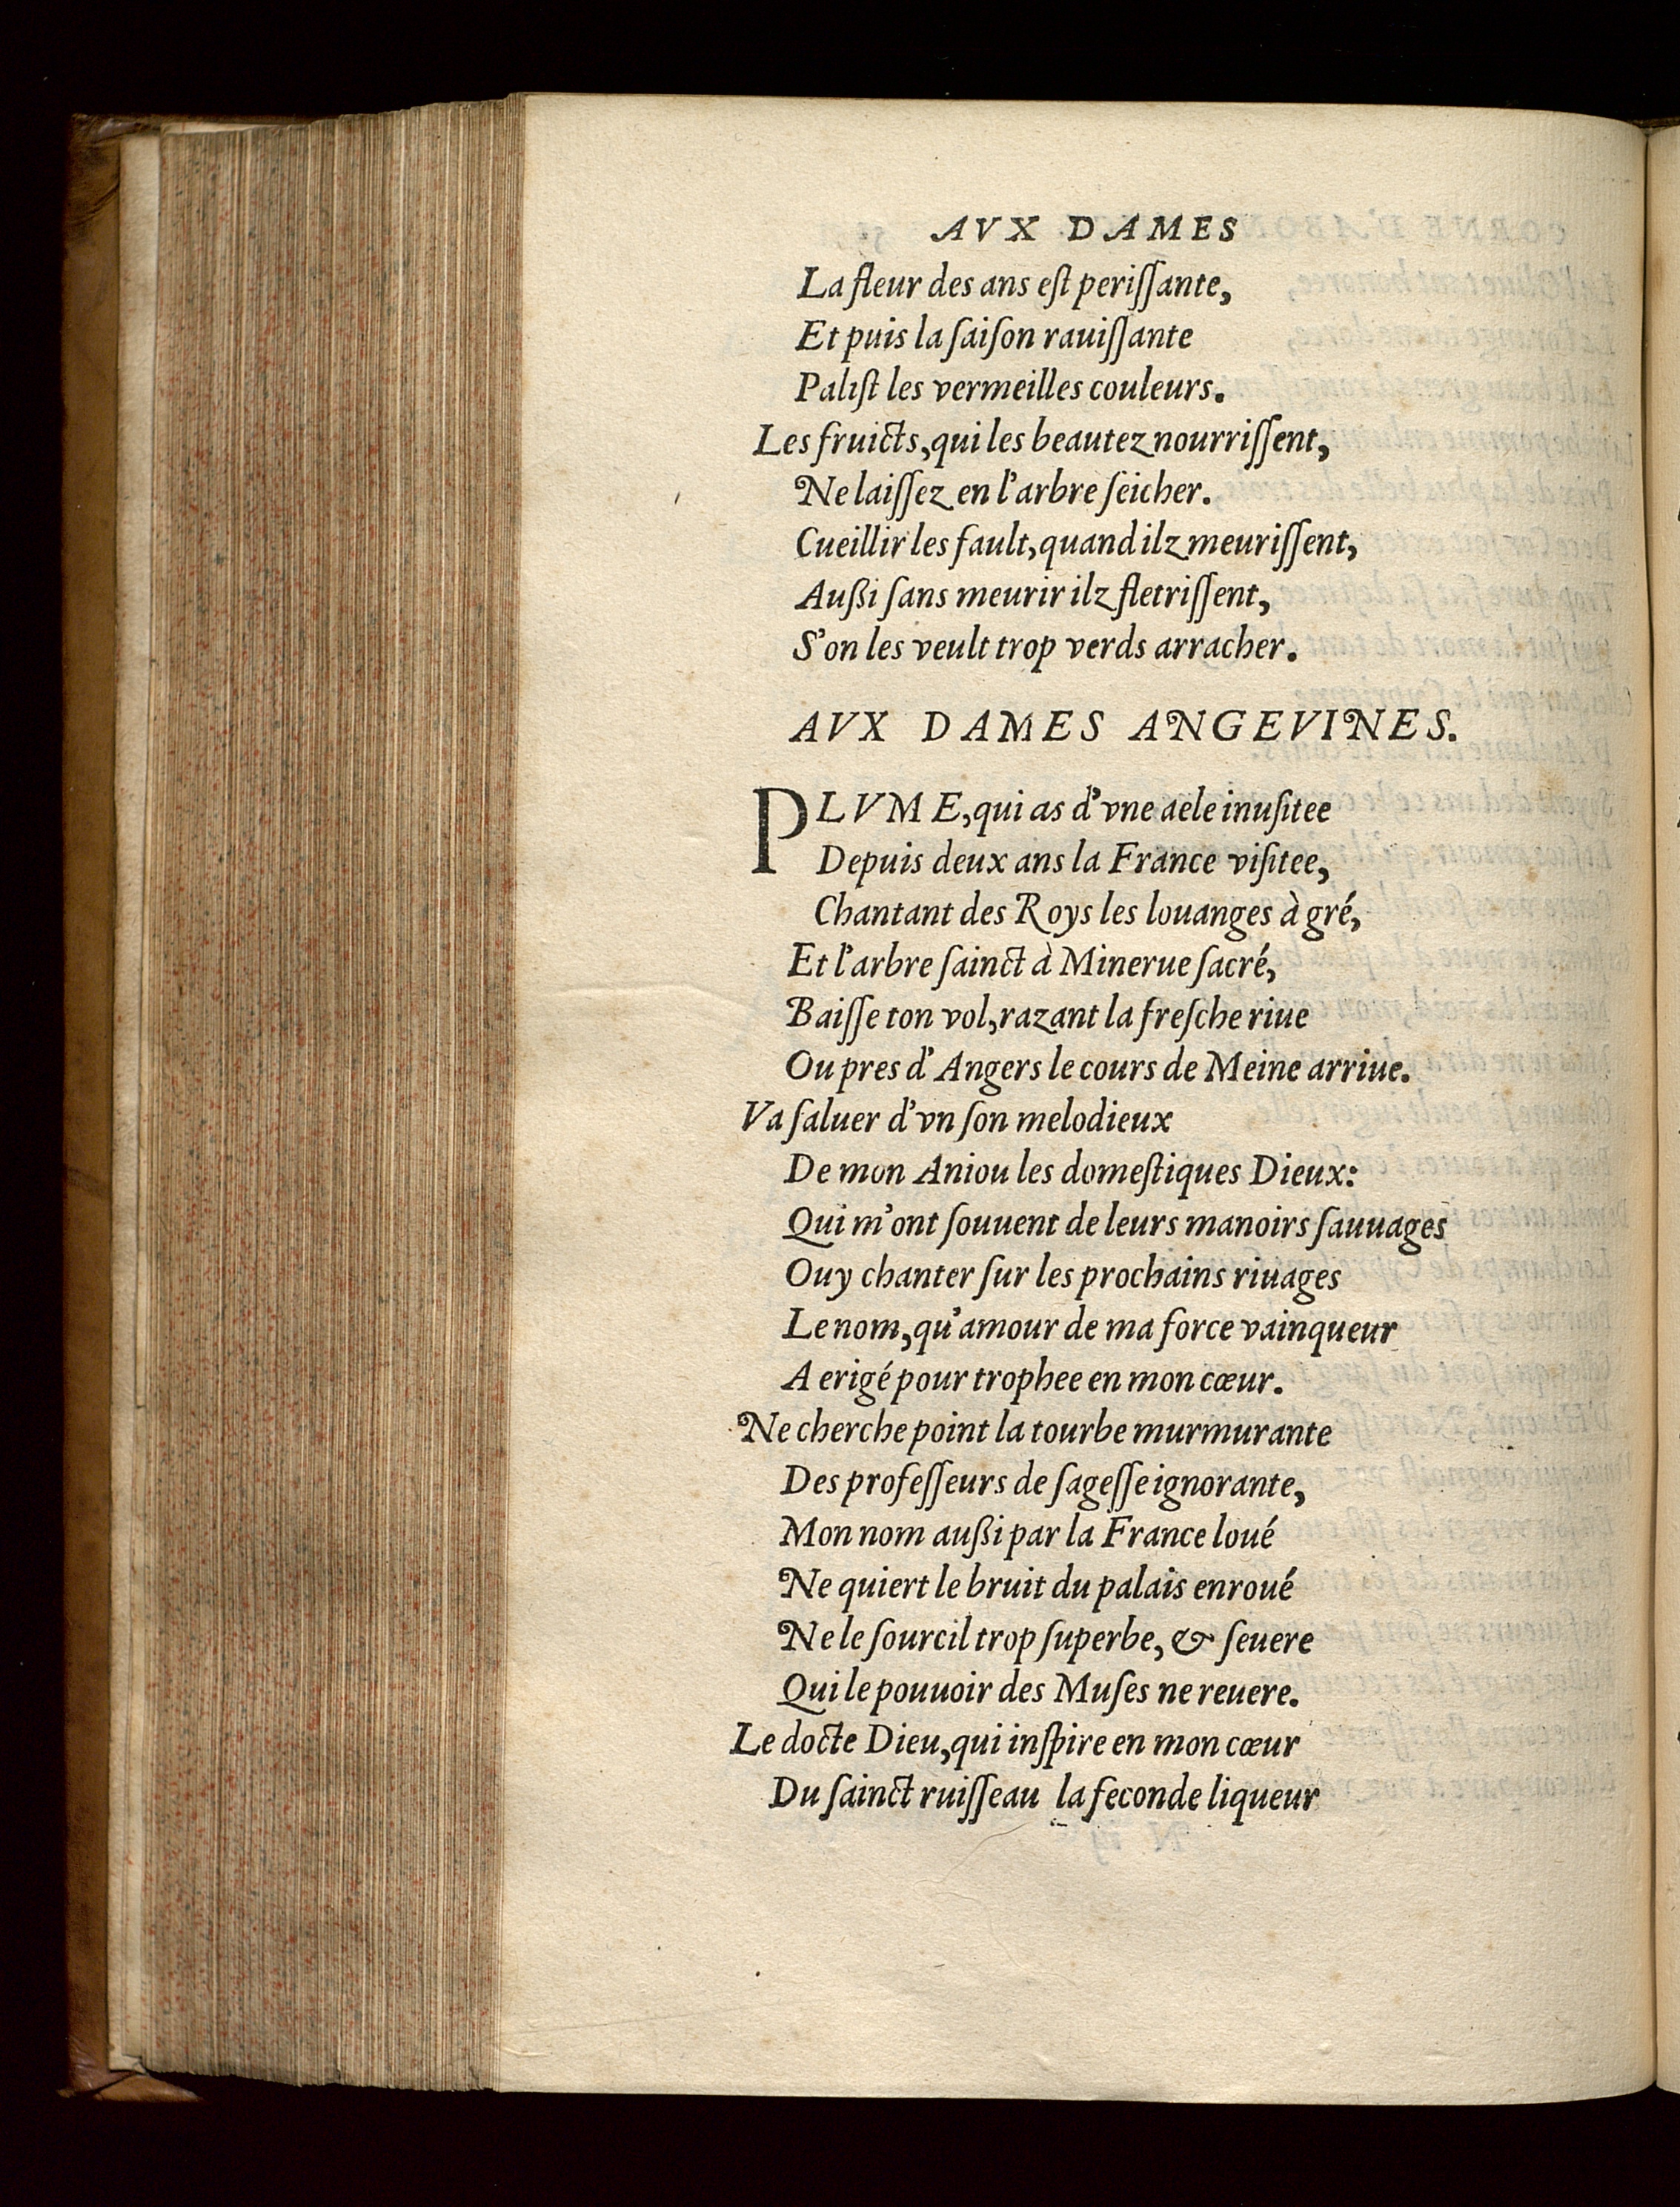 AVX DAMES
La fleur des ans eſt periſſante,
Et puis la ſaiſon rauiſſante
Paliſt les vermeilles couleurs.
Les fruicts, qui les beautez nourriſſent,
Ne laiſſez en l'arbre ſeicher.
Cueillir les fault, quand ilz meuriſſent,
Außi ſans meurir ilz fletriſſent,
S'on les veult trop verds arracher.
AVX DAMES ANGEVINES.
PLVME, qui as d'vne aele inuſitee
Depuis deux ans la France viſitee,
Chantant des Roys les louanges à gré,
Et l'arbre ſainct à Minerue ſacré,
Baiſſe ton vol, razant la freſche riue
Ou pres d'Angers le cours de Meine arriue.
Va ſaluer d'vn ſon melodieux
De mon Aniou les domeſtiques Dieux:
Qui m'ont ſouuent de leurs manoirs ſauuages
Ouy chanter ſur les prochains riuages
Le nom, qu'amour de ma force vainqueur
A erigé pour trophee en mon cœur.
Ne cherche point la tourbe murmurante
Des profeſſeurs de ſageſſe ignorante,
Mon nom außi par la France loué
Ne quiert le bruit du palais enroué
Ne le ſourcil trop ſuperbe, & ſeuere
Qui le pouuoir des Muſes ne reuere.
Le docte Dieu, qui inſpire en mon cœur
Du ſainct ruiſſeau la feconde liqueur